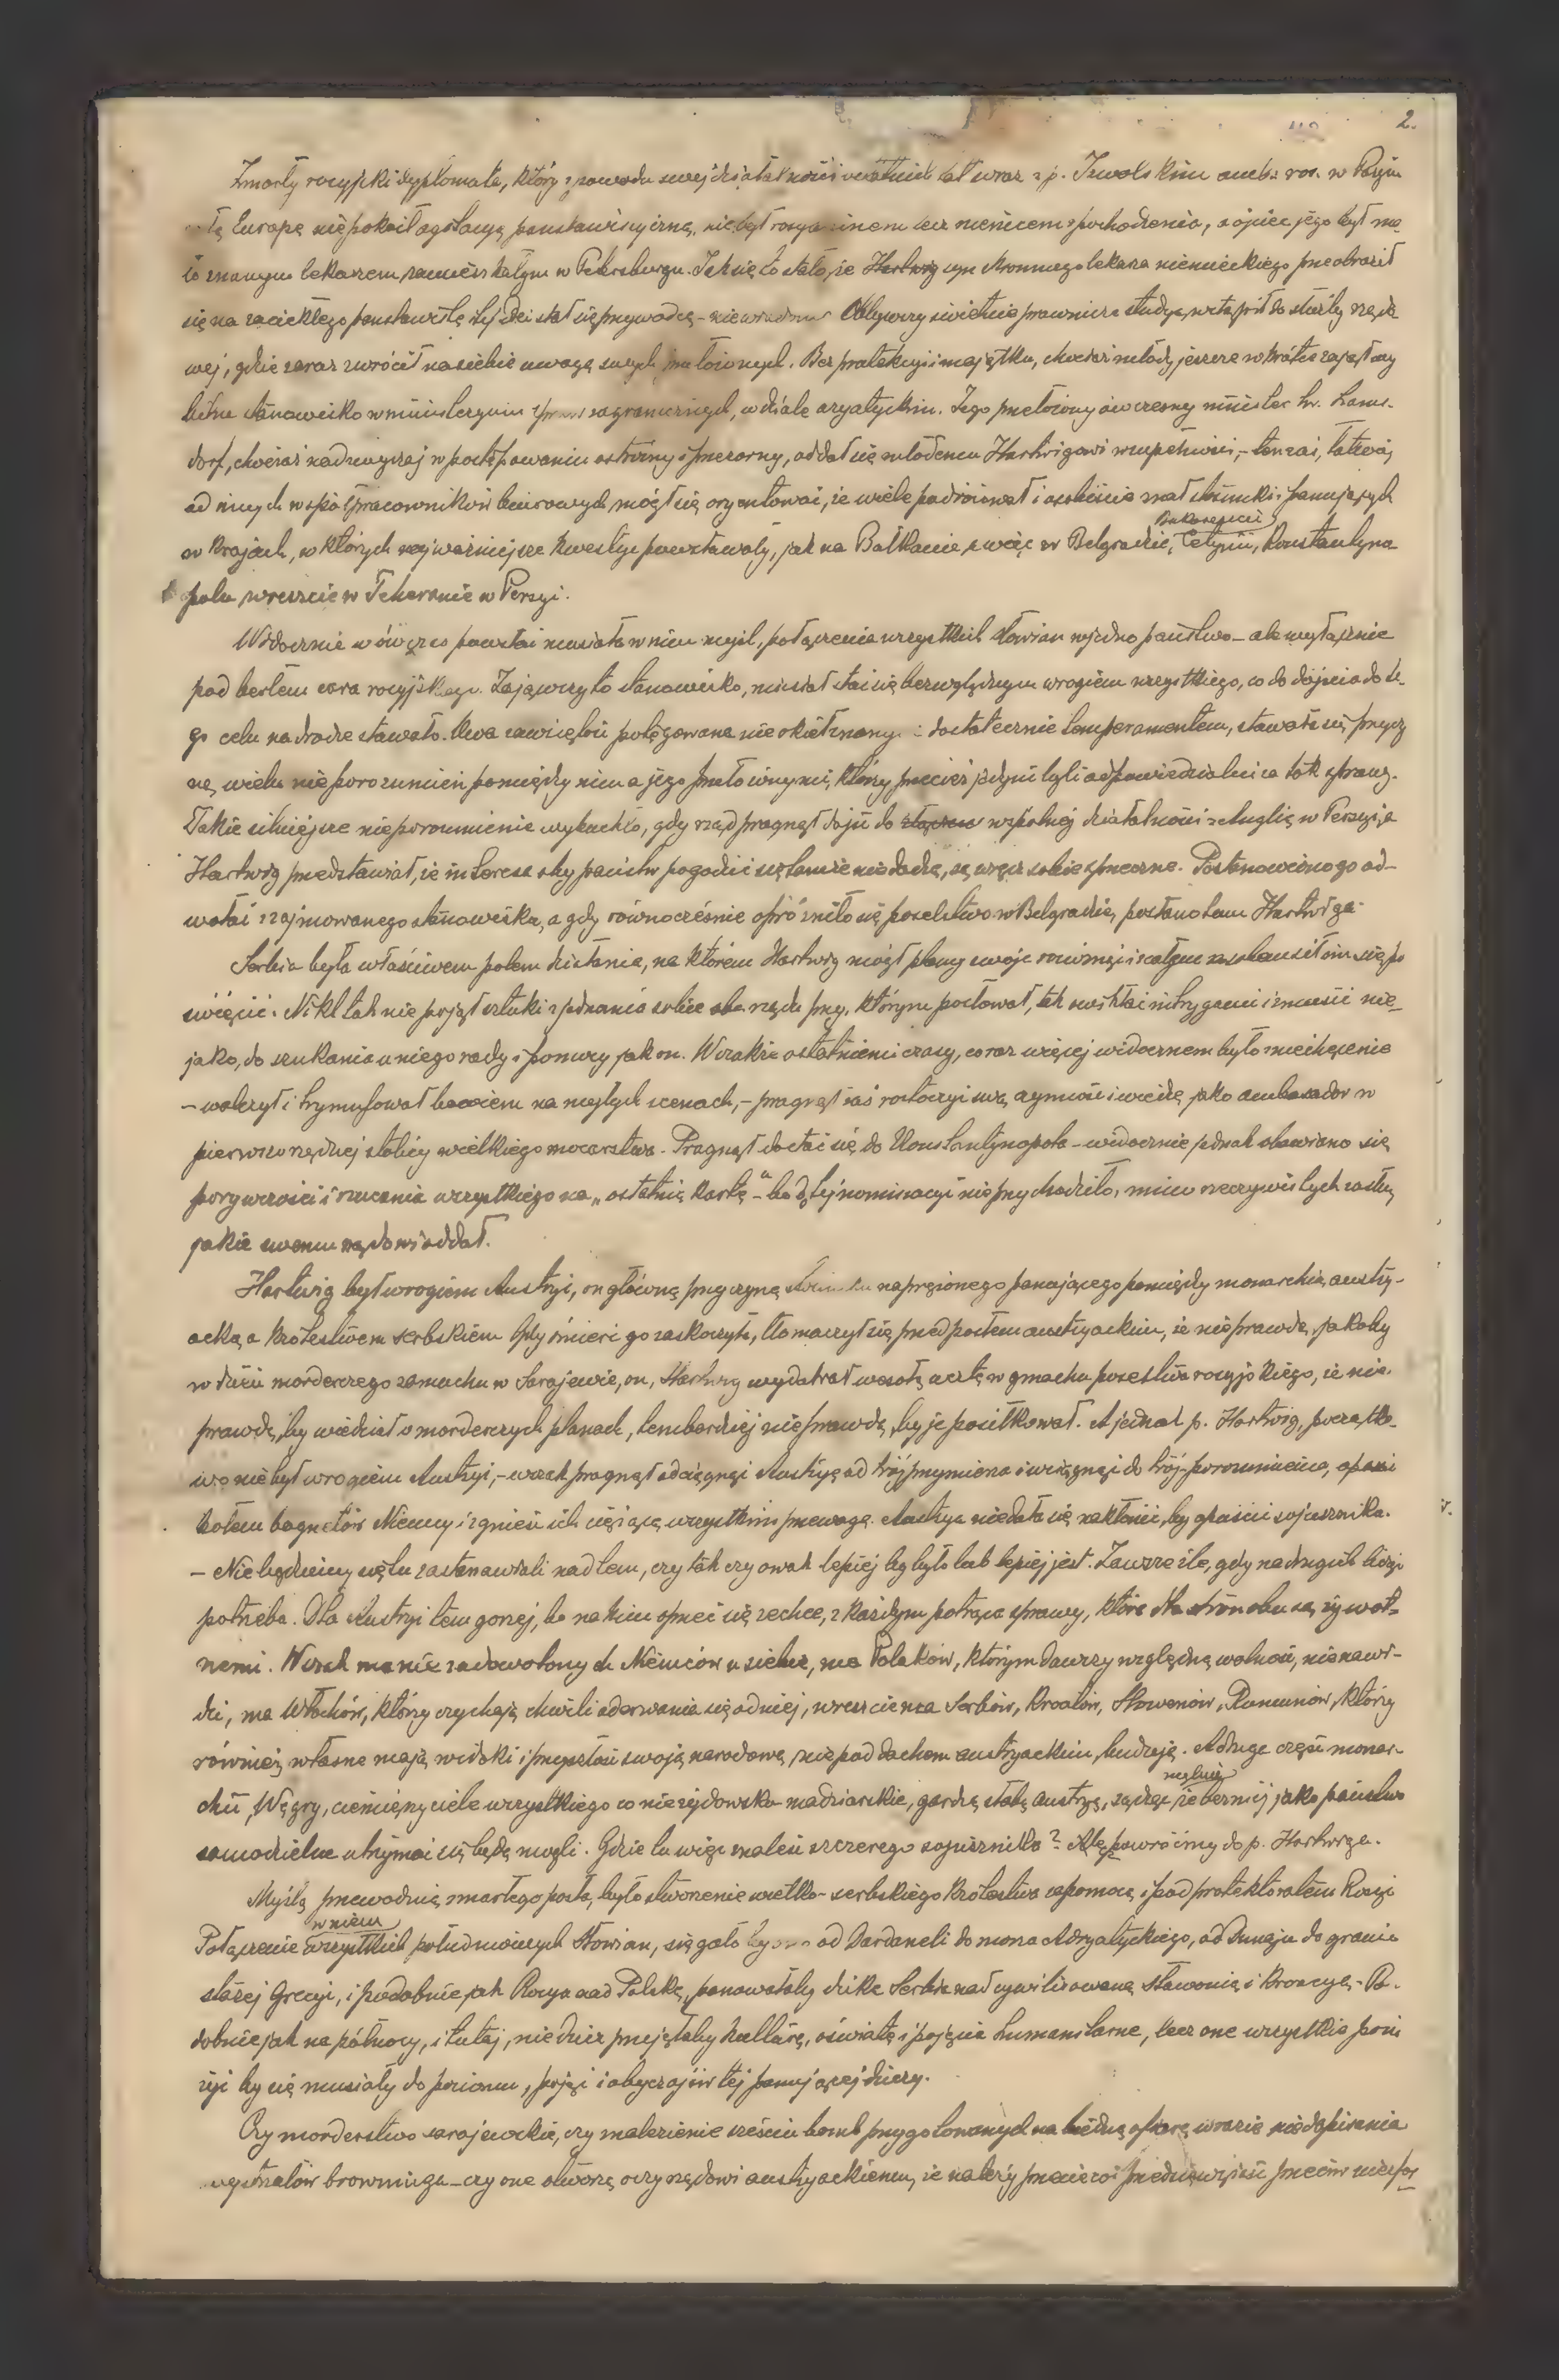 2.
Zmarły rosyjski dyplomata, który z powodu swej działalności ostatnich lat wraz z p. Izwolskim amb. ros. w Paryżu
Europę niepokoił agitacyą panslawistyczną, nie był rosyaninem lecz niemcem z pochodzenia, a ojciec jego był ma-
ło znanym lekarzem, zamieszkałym w Petersburgu. Jak się to stało, że Hartwig syn skromnego lekarza niemieckiego przeobraził
się na zaciekłego panslawistę tej idei stał się przywódcą – niewiadomo. Odbywszy świetnie prawnicze studya, wstąpił do służby rządo-
wej, gdzie zaraz zwrócił na siebie uwagę swych przełożonych. Bez protekcyi i majątku, chociaż młody jeszcze wkrótce zajął wy
bitne stanowisko w ministeryum spraw zagranicznych, w dziale azyatyckim. Jego przełożony ówczesny minister hr. Lams-
dorf, chociaż nadzwyczaj w postępowaniu ostrożny i przezorny, oddał się młodemu Hartwigowi w zupełności, – tenżaś, łatwiej
od innych współpracowników biurowych mógł się oryentować, że wiele podróżował i osobiście znał stosunki panujących
w krajach, w których najważniejsze kwestye powstawały, jak na Bałkanie, a więc w Belgradzie, Bukareszcie, Cetynii, Konstantyno-
polu wreszcie w Teheranie w Persyi.
Widocznie wówczas powstać musiała w nim myśl, połączenia wszystkich słowian w jedno państwo – ale wyłącznie
pod berłem cara rosyjskiego. Zająwszy to stanowisko, musiał stać się bezwzględnym wrogiem wszystkiego, co do dojścia do te-
go celu na drodze stawało. Owa zawziętość potęgowana nieokiełznanym dostatecznie temperamentem, stawała się przyczy
ną, wielu nieporozumień pomiędzy nim a jego przełożonymi, którzy przecież jedyni byli odpowiedzialni za tok spraw.
Takie silniejsze nieporozumienie wybuchło, gdy rząd pragnął dojść do wspólnej działalności z Anglią w Persyi, a
Hartwig przedstawiał, że interesa oby państw pogodzić się tamże nie dadzą, są wręcz sobie sprzeczne. Postanowiono go od-
wołać z zajmowanego stanowiska, a gdy równocześnie opróżniło się poselstwo w Belgradzie, posłano tam Hartwiga.
Serbia była właściwem polem działania, na którem Hartwig mógł plany swoje rozwinąć i całym zasobem sił im się po
święcić. Nikt tak nie pojął sztuki zjednania sobie rządu przy, którym posłował, tak usidlać intrygami i zmusić nie-
jako, do szukania u niego rady i pomocy jak on. Wszakże ostatniemi czasy, coraz więcej widocznem było zniechęcenie
– walczył i tryumfował bowiem na małych scenach, – pragnął zaś roztoczyć swą czynność i wiedzę jako ambasador w
pierwszorzędnej stolicy wielkiego mocarstwa. Pragnął dostać się do Konstantynopola – widocznie jednak obawiano się
porywczości i rzucania wszystkiego na „ostatnią kartę“ – bo do tej nominacyi nie przychodziło, mimo rzeczywistych zasług
jakie swemu rządowi oddał.
Hartwig był wrogiem Austryi, on główną przyczyną stosunku naprężonego panującego pomiędzy monarchią austry-
acką a królestwem serbskiem. Gdy śmierć go zaskoczyła, tłomaczył się przed posłem austryackim, że nieprawdą, jakoby
w dzień morderczego zamachu w Sarajewie, on, Hartwig wydał wesołą ucztę w gmachu poselstwa rosyjskiego, że nie-
prawdą, by wiedział o morderczych planach, tembardziej nieprawdą, by je posiłkował. A jednak p. Hartwig, początko-
wo nie był wrogiem Austryi, – wszak pragnął odciągnąć Austryę od trójprzymierza i wciągnąć do trój-porozumienia, opasać
kołem bagnetów Niemcy i zgnieść ich ciężącą wszystkim przewagę. Austrya nie dała się nakłonić, by opuścić sojusznika.
– Nie będziemy się tu zastanawiali nad tem, czy tak czy owak lepiej by było lub lepiej jest. Zawsze źle, gdy na drugich liczyć
potrzeba. Dla Austryi tem gorzej, bo na kim oprzeć się zechce, z każdym potrąca sprawy, które dla stron obu są żywot-
nemi. Wszak ma niezadowolonych Niemców u siebie, ma Polaków, którym dawszy względną wolność, nienawi-
dzi, ma Włochów, którzy czyhają chwili oderwania się od niej, wreszcie ma Serbów, Kroatów, Słoweńców, Rumunów, którzy
również własne mają widoki i przyszłość swoją narodową, nie pod dachem austryackim budują. A druga część monar-
chii, Węgry, ciemięzyciele wszystkiego co nie żydowsko-madziarskie, gardzą całą Austryą, sądząc mylnie że bez niej jako państwo
samodzielne utrzymać się będą mogli. Gdzie tu więc znaleść szczerego sojusznika? Ale powróćmy do p. Hartwiga.
Myślą przewodnią zmarłego posła, było stworzenie wielko-serbskiego królestwa za pomocą i pod protektoratem Rosyi
Połączenie w niem wszystkich południowych Słowian, sięgało by ono od Dardaneli do morza Adryatyckiego, od Dunaju do granic
starej Grecyi, i podobnie jak Rosya nad Polską, panowałaby dzika Serbia nad cywilizowaną Sławonią i Kroacyą. Po-
dobnie jak na północy, i tutaj, nie dzicz przejęłaby kulturę, oświatę i pojęcia humanitarne, lecz one wszystkie poni
żyć by się musiały do poziomu, pojęć i obyczajów tej panującej dziczy.
Czy morderstwo sarajewskie, czy znalezienie sześciu bomb przygotowanych na biedną ofiarę w razie niedopisania
wystrzałów browninga – czy one otworzą oczy rządowi austryackiemu, że należy przecież coś przedsięwziąść przeciw